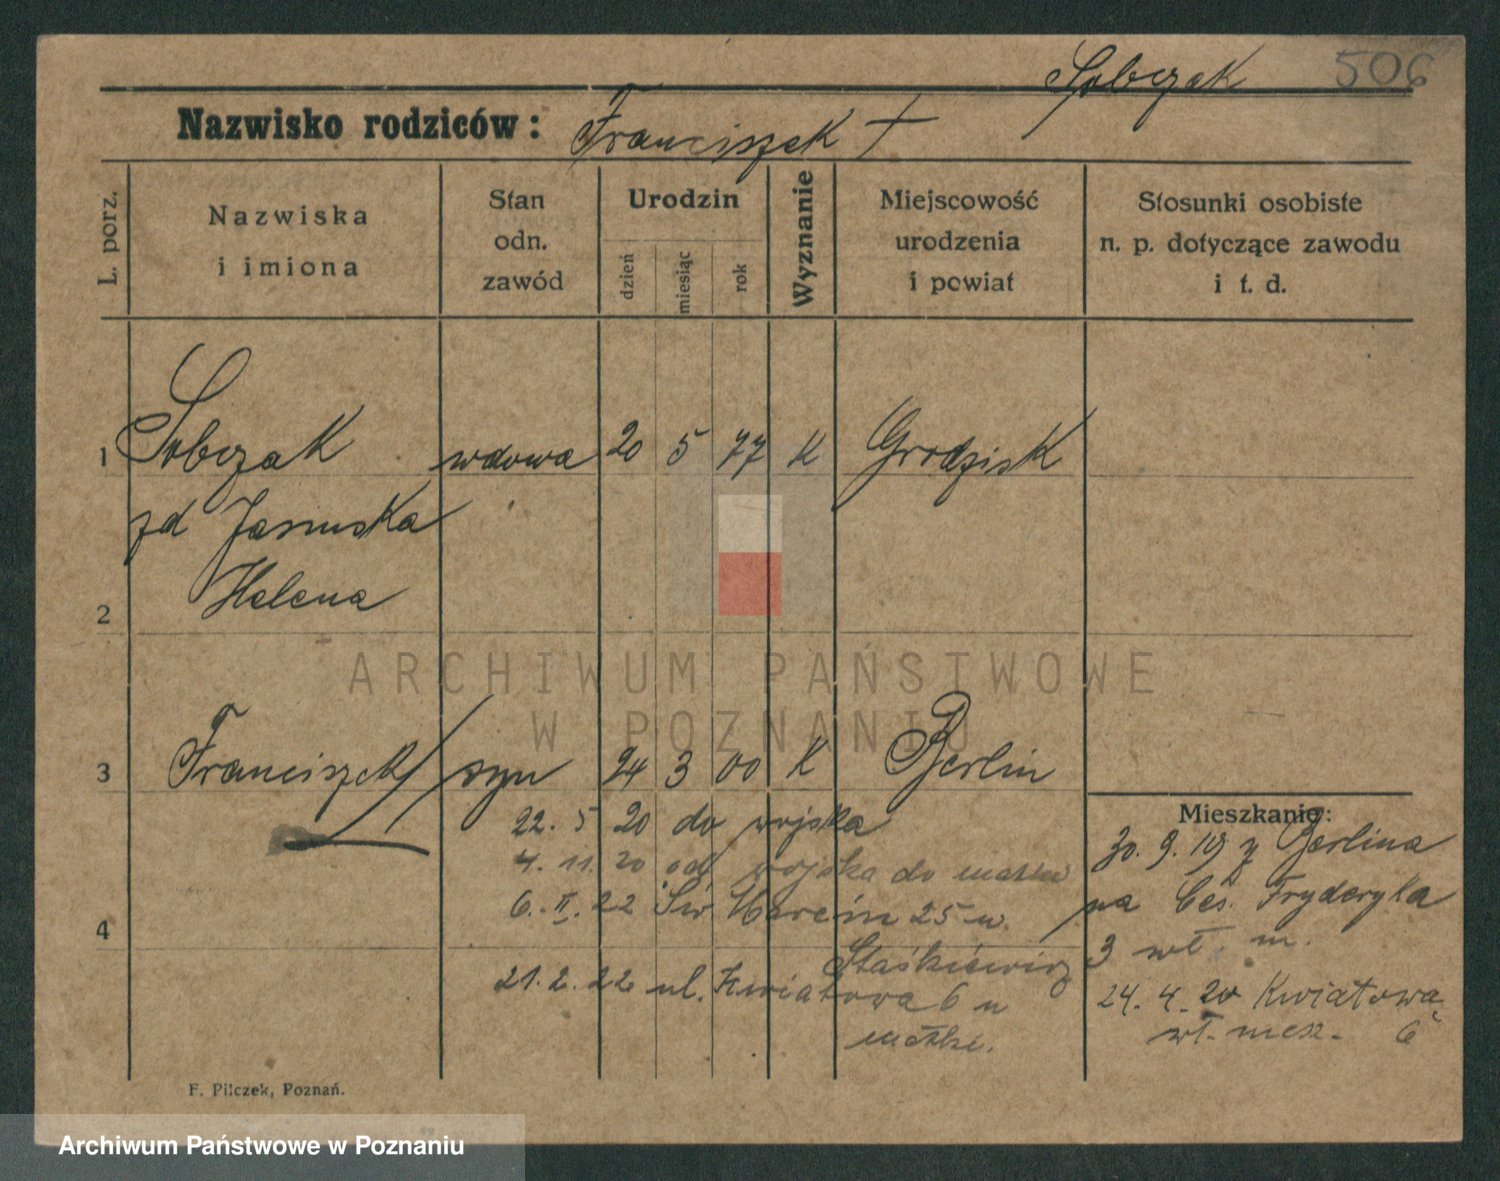 Sobczak 506
Nazwisko rodziców: Franciszek +
L. porz.
Nazwiska
i imiona
Stan
odn.
zawód
Urodzin
dzień
miesiąc
rok
Wyznanie
Miejscowość
urodzenia
i powiat
Stosunki osobiste
n. p. dotyczące zawodu
i t. d.
1 Sobczak wdowa 20 5 77 K Grodzisk
zd
Helena
2
3 Franciszek syn 24 3 00 K Berlin
22. 5 20 do wojska
4. 11. 20 od wojska do matki
6. II. 22 Św Marcin 25 u
Staśkiewicz
21. 2. 22 ul. Kwiatowa 6 u
matki.
4
Mieszkanie:
30. 9. 19 z Berlina
na Ces. Fryderyka
3 wł. m.
24. 4. 20 Kwiatowa
wł. miesz. 6
F. Pilczek, Poznań.
ARCHIWUM PAŃSTWOWE
W POZNANIU
Archiwum Państwowe w Poznaniu